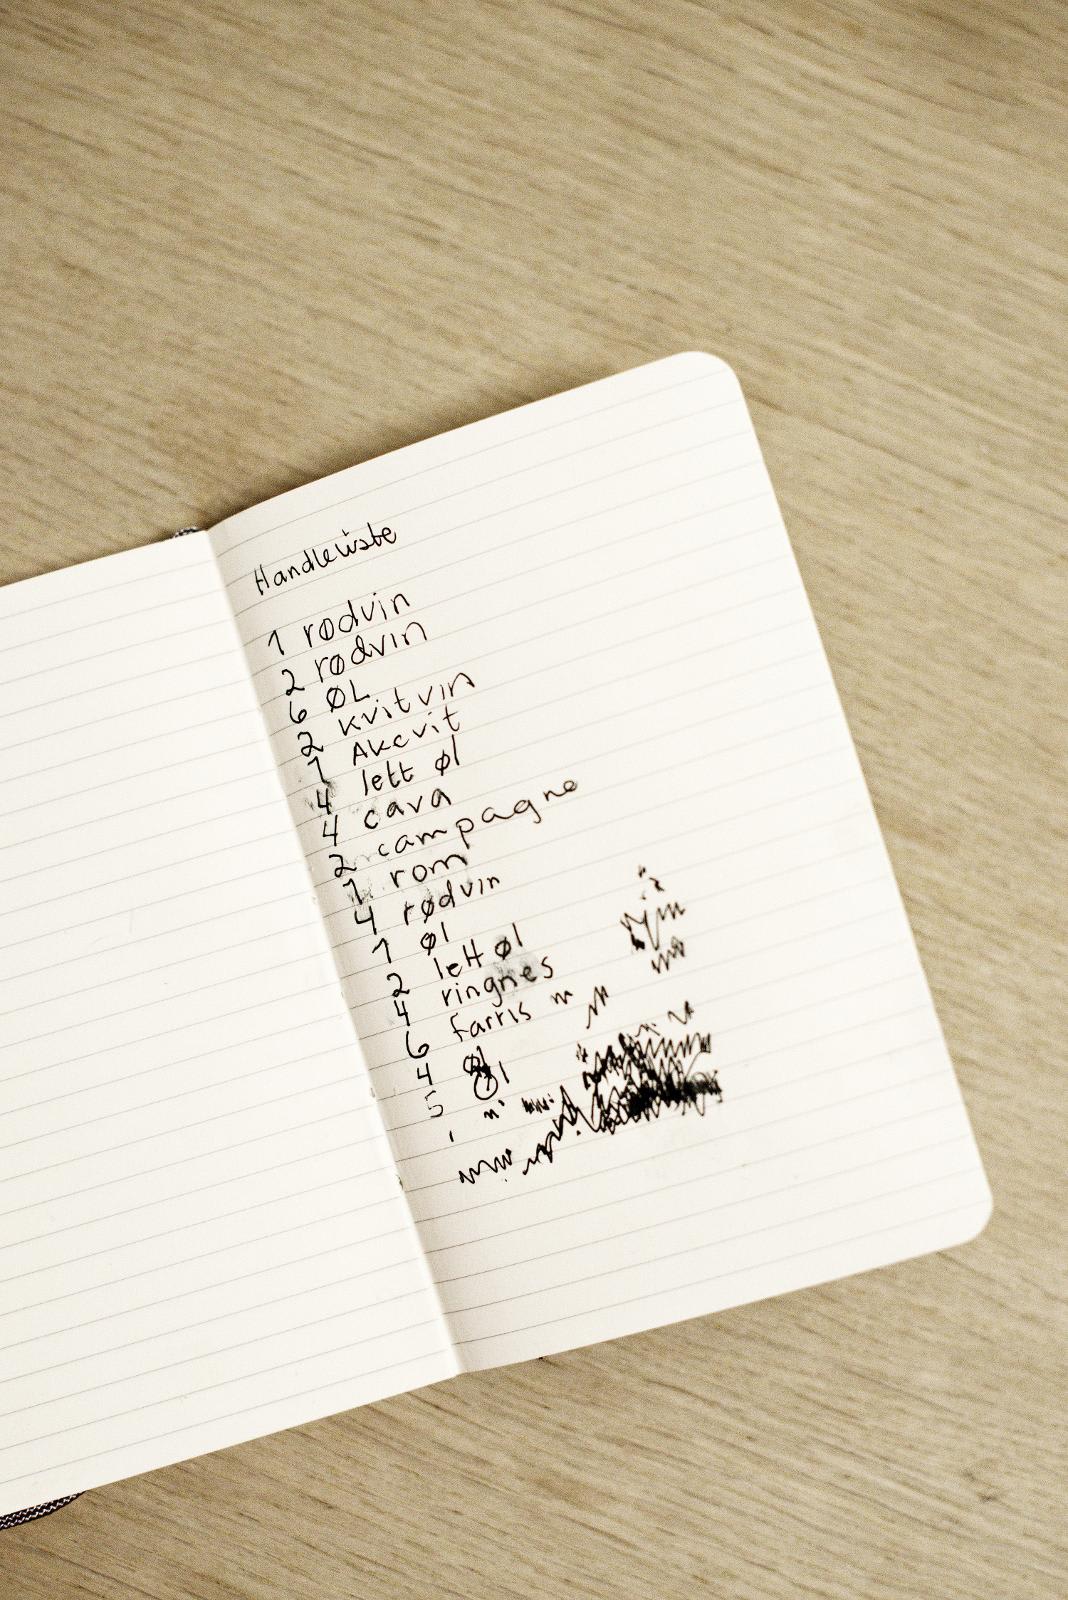 Handleliste
1 rødvin
2 rødvin
6 ØL
2 kvitvin
1 Akevit
4 lett øl
4 cava
2 campagne
1 rom
4 rødvin
1 øl
2 lett øl
4 ringnes
6 farris
4 øl
5 Øl